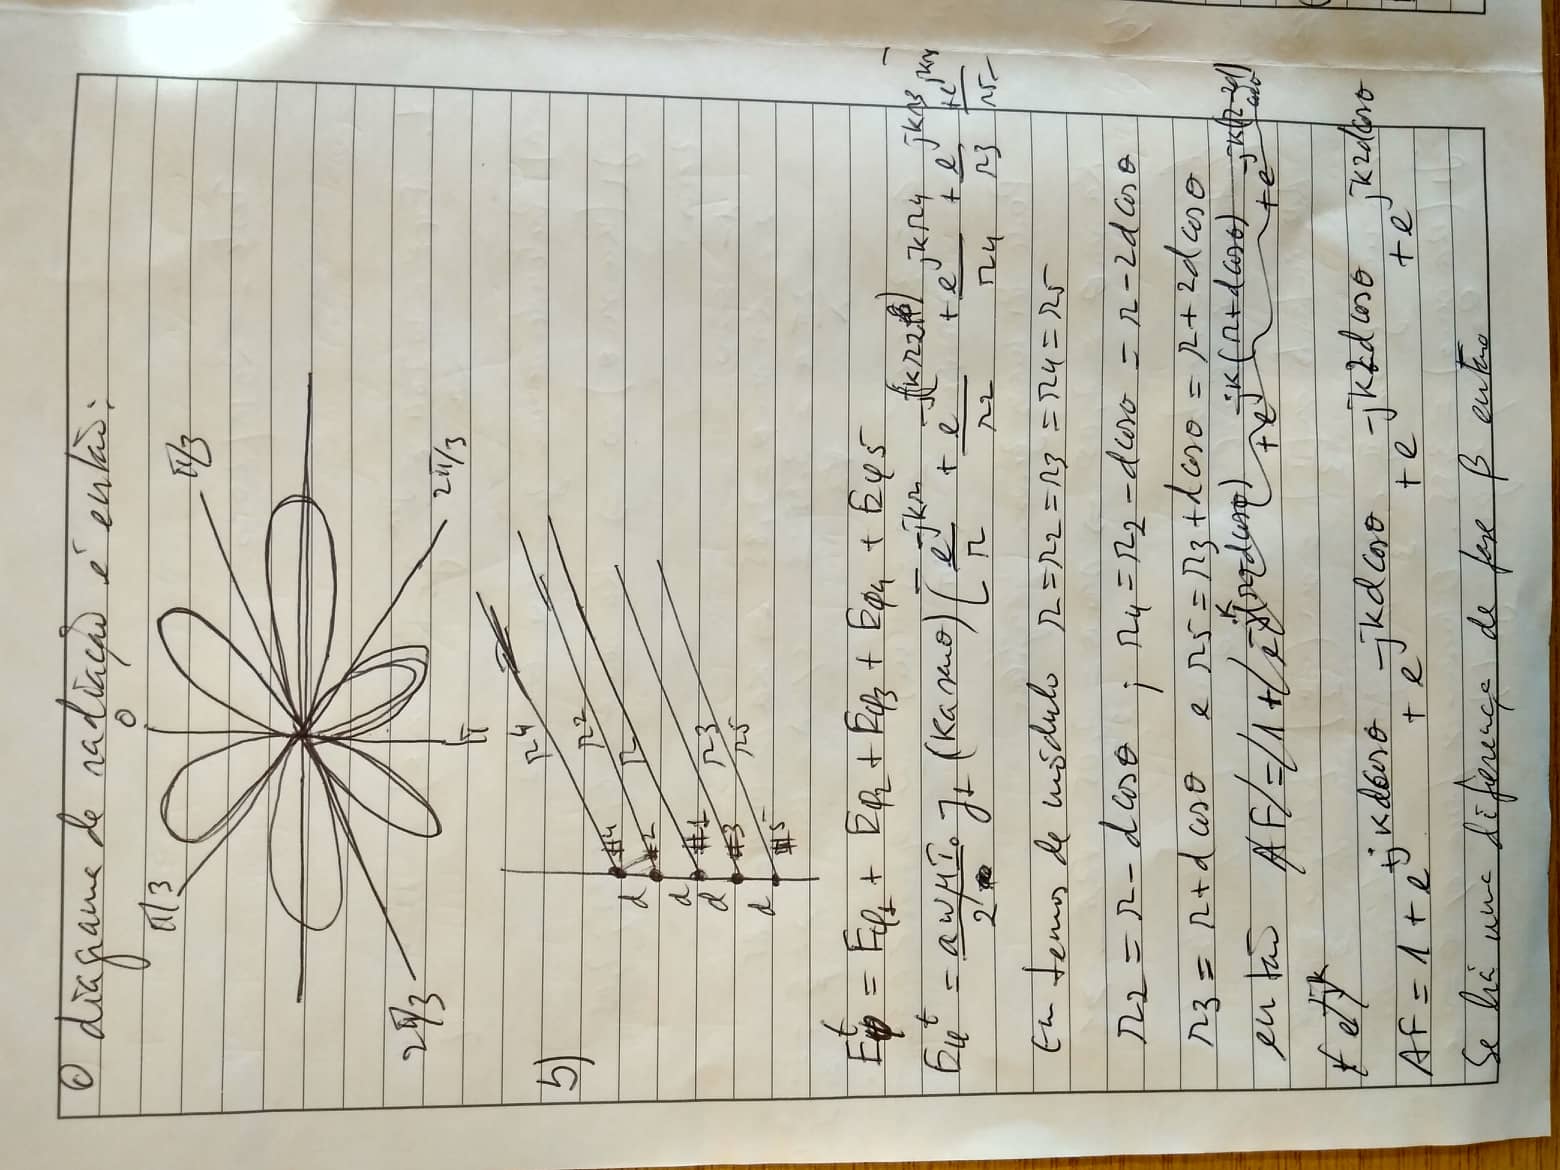 O diagrama de radiação é então:
0
π/3 π/3
2π/3 2π/3
π
5)
r4
r2
r
r3
r5
#4
d #2
d #1
d #3
d #5
Eφ^t = Eφ1 + Eφ2 + Eφ3 + Eφ4 + Eφ5
Eφ^t = aωμI0/2 J1(ka senθ) [ e^-jkr/r + e^-j(kr2)/r2 + e^-jkr4/r4 + e^-jkr3/r3 + e^-jkr5/r5 ]
Em temos de módulo r = r2 = r3 = r4 = r5
r2 = r - d cosθ ; r4 = r2 - d cosθ = r - 2d cosθ
r3 = r + d cosθ e r5 = r3 + d cosθ = r + 2d cosθ
então AF = 1 +
AF = 1 + e^+jkd cosθ + e^-jkd cosθ + e^-jk2d cosθ + e^jk2d cosθ
Se há uma diferença de fase β então